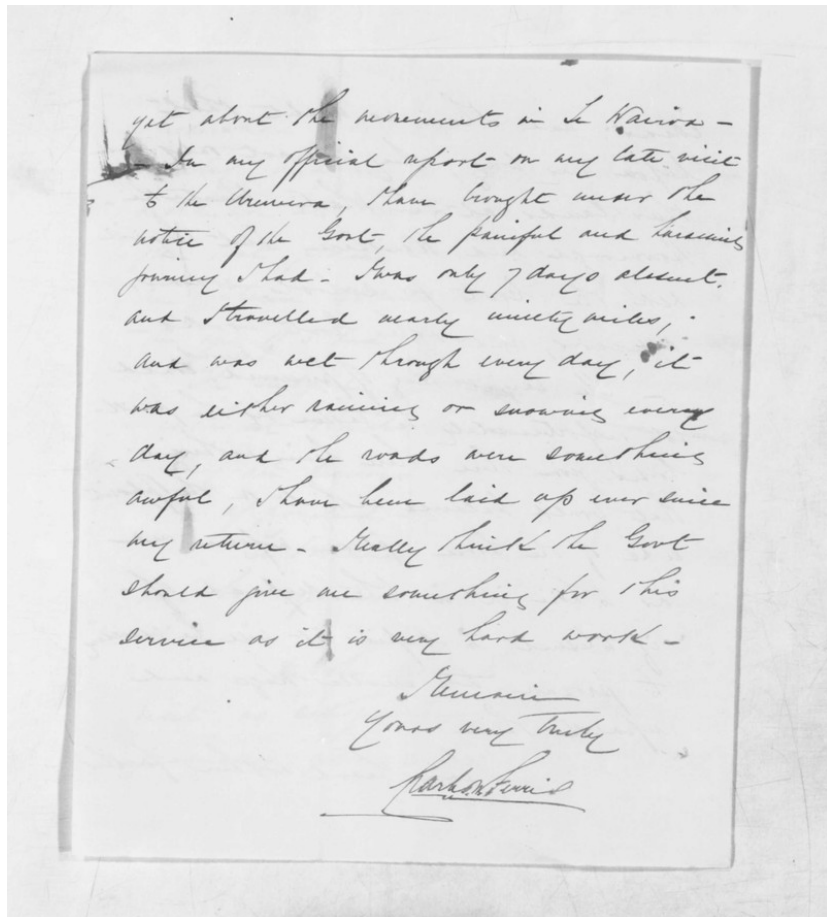 yet about the movements in Te Wairoa -
- In my official report on my late visit
to the Urewera, I have brought under the
notice of the Govt, the painful and harassing
journey I had - I was only 7 days absent,
and I travelled nearly ninety miles, -
and was wet through every day, it
was either raining or snowing every
day, and the roads were something
awful, I have been laid up ever since
my return - I really think the Govt
should give me something for this
service as it is very hard work -
I remain
Yours very truly
Charles Ferris